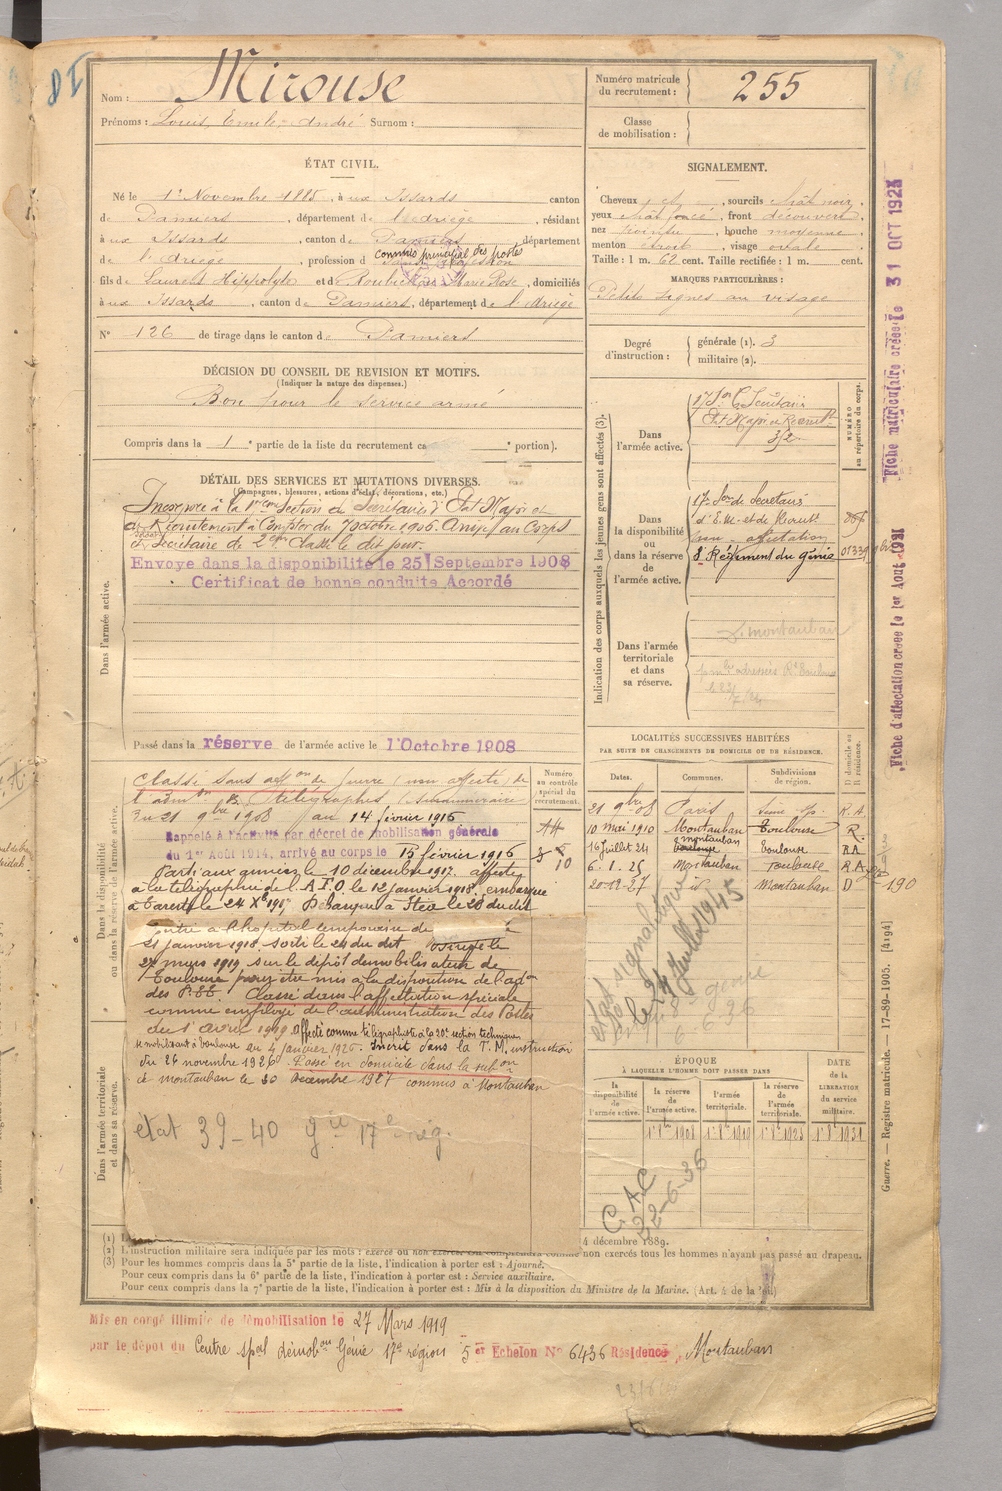 Nom : Mirouse
Prénoms : Louis, Emile, André Surnom :
Numéro matricule du recrutement : 255
Classe de mobilisation :
ÉTAT CIVIL.
Né le 1er Novembre 1885, à aux Issards canton
de Pamiers, département de l'Ariège, résidant
à aux Issards, canton de Pamiers département
de l'Ariège, profession d
commis principal des postes
fils de Laurent Hippolyte et d Marie Rose, domiciliés
à aux Issards, canton de Pamiers, département de l'Ariège
N° 126 de tirage dans le canton de Pamiers
SIGNALEMENT.
Cheveux , sourcils chât noir,
yeux chât foncé, front découvert,
nez pointu, bouche moyenne,
menton étroit, visage ovale.
Taille : 1 m. 62 cent. Taille rectifiée : 1 m. cent.
MARQUES PARTICULIÈRES :
Petits signes au visage
Degré d'instruction : générale (1). 3
militaire (2).
DÉCISION DU CONSEIL DE REVISION ET MOTIFS.
(Indiquer la nature des dispenses.)
Bon pour le service armé
Compris dans la 1e partie de la liste du recrutement portion).
DÉTAIL DES SERVICES ET MUTATIONS DIVERSES.
(Campagnes, blessures, actions d'éclat, décorations, etc.)
Dans l'armée active.
Incorporé à la 17eme Section de Secrétaires d'Etat Major et
de Recrutement à Compter du 7 octobre 1906. Arrivé au Corps
et Secrétaire de 2eme Classe le dit jour.
Envoyé dans la disponibilité le 25 Septembre 1908
Certificat de bonne conduite Accordé
Passé dans la réserve de l'armée active le 1 Octobre 1908
Indication des corps auxquels les jeunes gens sont affectés (3).
NUMÉRO au répertoire du corps.
Dans l'armée active.
17e Son Secrétaires
Etat Major et Recrutt
Dans la disponibilité ou dans la réserve de l'armée active.
17e Son de Secrétaires
d'E.M. et de Recrutt
affectation
8e Régiment du génie
Dans l'armée territoriale et dans sa réserve.
Montauban
Dans la disponibilité ou dans la réserve de l'armée active.
Classé sans affon de guerre (non affecté) de
l'admton télégraphes (surnuméraire)
Du 21 9bre 1908 au 14 février 1916
Rappelé à l'activité par décret de mobilisation générale
du 1er Août 1914, arrivé au corps le 15 février 1916
Parti aux armées le 10 décembre 1917. affecté
à la télégraphie de l'A F O. le 12 janvier 1918. embarqué
à Tarente le 24 Xbre 1917 Débarqué à Itéa le 28 du dit
Entré à l'hôpital temporaire de
21 janvier 1918 sorti le 24 du dit
27 mars 1919 sur le dépôt démobilisateur de
Toulouse pour être mis à la disposition de l'adon
des P.T.T. Classé dans l'affectation spéciale
comme employé de l'administration des Postes
du 1 avril 1919 Affecté comme télégraphiste à la 20e section technique
à Toulouse au 4 janvier 1926. Inscrit dans la T.M. instruction
du 26 novembre 1926 Passé en domicile dans la subon
de Montauban le 30 décembre 1927 commis à Montauban
état 39-40 gie 17e rég
Dans l'armée territoriale et dans sa réserve.
Numéro au contrôle spécial du recrutement.
LOCALITÉS SUCCESSIVES HABITÉES
PAR SUITE DE CHANGEMENTS DE DOMICILE OU DE RÉSIDENCE.
Dates. Communes. Subdivisions de région. D domicile ou R résidence.
21 9bre 08 Paris Seine R. A.
10 mai 1910 Montauban Toulouse R.
16 juillet 24 Montauban Toulouse RA
6. 1. 25 Montauban Toulouse R A
20-11-27 id Montauban D
190
le 24 Juillet 1945
8e génie
6-6-36
ÉPOQUE
À LAQUELLE L'HOMME DOIT PASSER DANS
la disponibilité de l'armée active. la réserve de l'armée active. l'armée territoriale. la réserve de l'armée territoriale.
DATE de la LIBERATION du service militaire.
C. A. C
22-6-36
4 décembre 1889.
(2) L'instruction militaire sera indiquée par les mots : exercé ou non exercé. non exercés tous les hommes n'ayant pas passé au drapeau.
(3) Pour les hommes compris dans la 5e partie de la liste, l'indication à porter est : Ajourné.
Pour ceux compris dans la 6e partie de la liste, l'indication à porter est : Service auxiliaire.
Pour ceux compris dans la 7e partie de la liste, l'indication à porter est : Mis à la disposition du Ministre de la Marine. (Art. 4 de la loi)
Mis en congé illimité de démobilisation le 27 Mars 1919
par le dépôt du Centre spal démobon Génie 17e région 5er Echelon N° 6436 Résidence, Montauban
Fiche matriculaire créée le 31 OCT 1923
Fiche d'affectation créée le 1er Aout 1921
Guerre. — Registre matricule. — 17-89-1905. [4194]